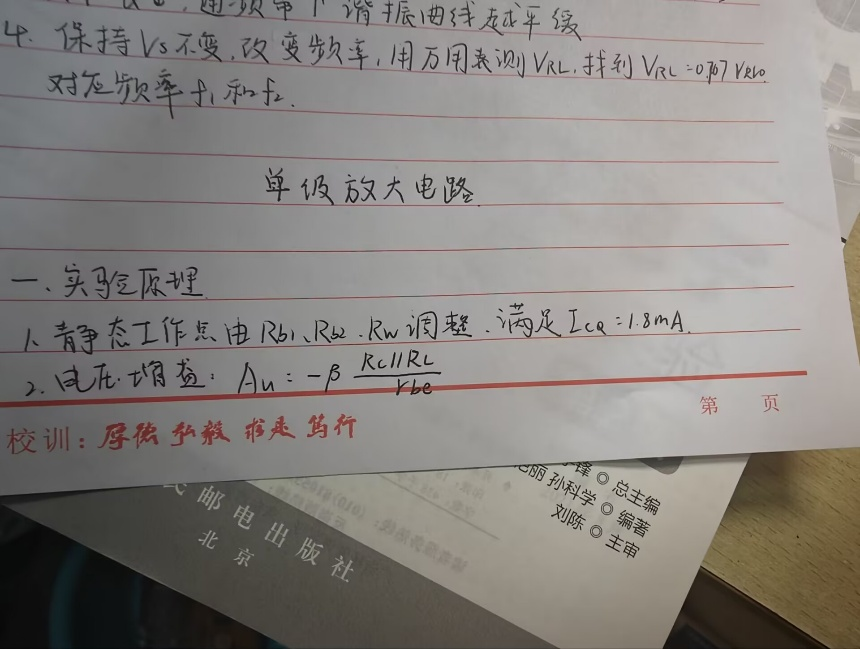 通频带下谐振曲线越平缓
4. 保持Vs不变,改变频率,用万用表测VRL,找到VRL=0.707VRL0
对应频率f1和f2.
单级放大电路.
一、实验原理
1、静态工作点由Rb1、Rb2、RW调整、满足ICQ=1.8mA.
2、电压增益: Au = -β RC//RL / rbe
第 页
校训: 厚德 弘毅 求是 笃行
锋 ◎ 总主编
丽 孙科学 ◎ 编著
刘陈 ◎ 主审
民邮电出版社
北京